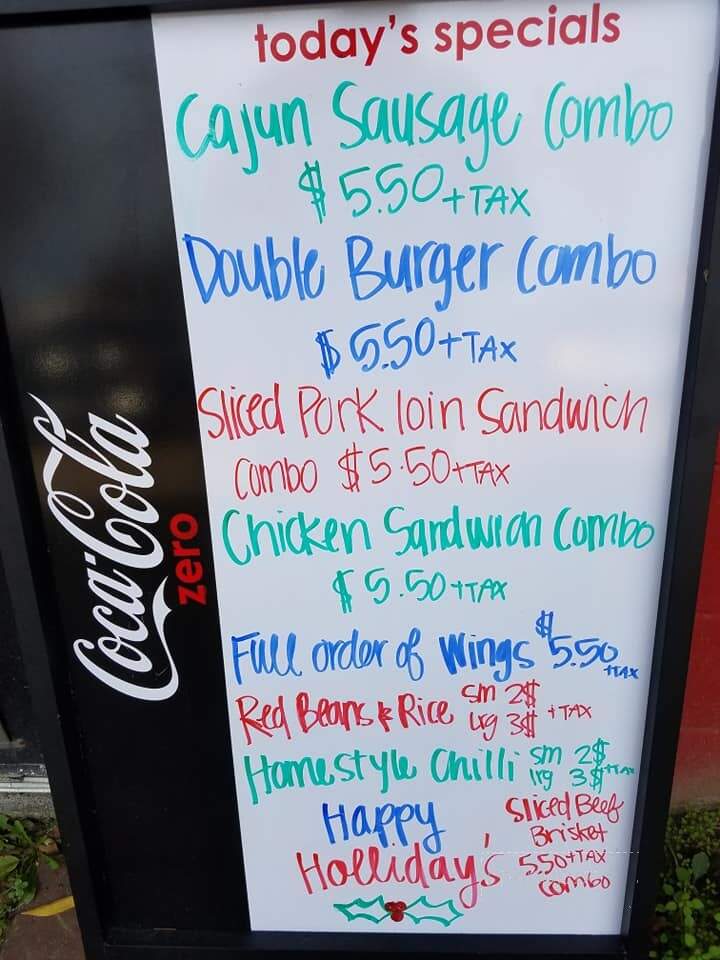 today's specials
Cajun Sausage Combo
$5.50+TAX
Double Burger Combo
$5.50+TAX
Sliced Pork loin Sandwich
Combo $5.50+TAX
Chicken Sandwich Combo
$5.50+TAX
Full order of Wings $5.50
+TAX
Red Beans & Rice sm 2$
lrg 3$ +TAX
Homestyle Chilli sm 2$
lrg 3$ +TAX
Happy
Holliday's
Sliced Beef
Brisket
5.50+TAX
Combo
Coca-Cola
zero